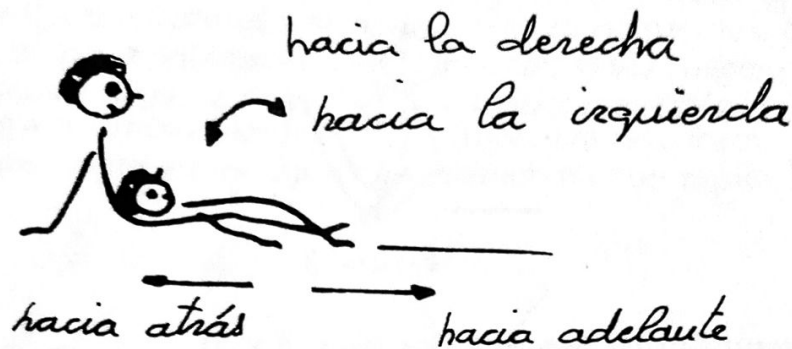 hacia la derecha
hacia la izquierda
hacia atrás
hacia adelante